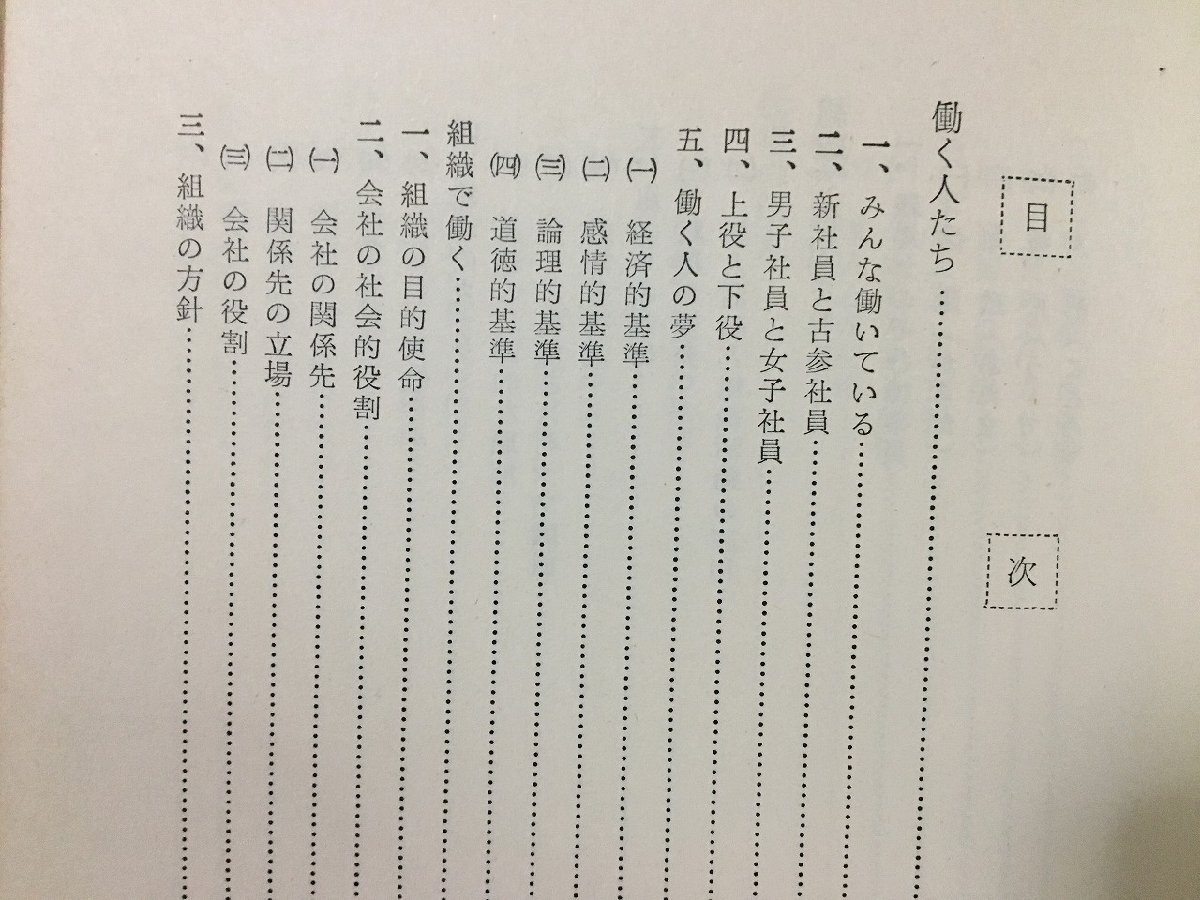 目次
働く人たち
一、みんな働いている
二、新社員と古参社員
三、男子社員と女子社員
四、上役と下役
五、働く人の夢
㈠ 経済的基準
㈡ 感情的基準
㈢ 論理的基準
㈣ 道徳的基準
組織で働く
一、組織の目的使命
二、会社の社会的役割
㈠ 会社の関係先
㈡ 関係先の立場
㈢ 会社の役割
三、組織の方針